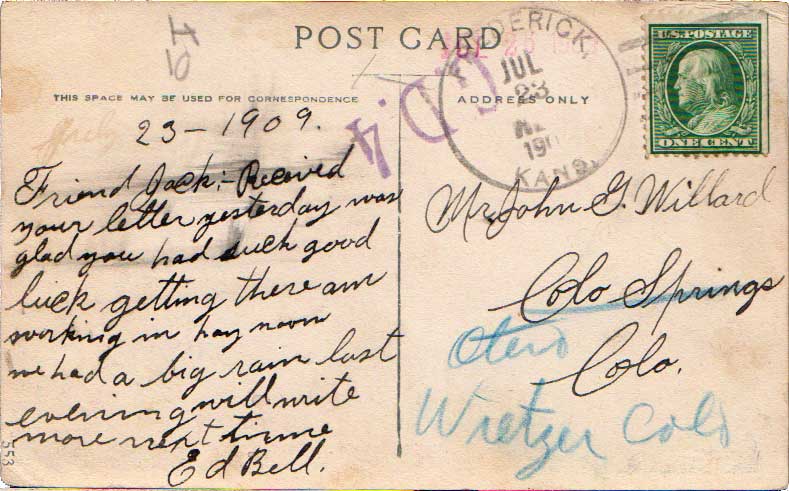 POST CARD
THIS SPACE MAY BE USED FOR CORRESPONDENCE
ADDRESS ONLY
FREDERICK,
JUL
23
190
KANS.
U.S. POSTAGE
ONE CENT
G.D. 4
23-1909.
Friend Jack:- Received
your letter yesterday was
glad you had such good
luck getting there am
working in hay noon
we had a big rain last
evening will write
more next time
Ed Bell.
Mr. John G. Willard
Colo Springs
Colo.
Otero
Wretzer Colo
553